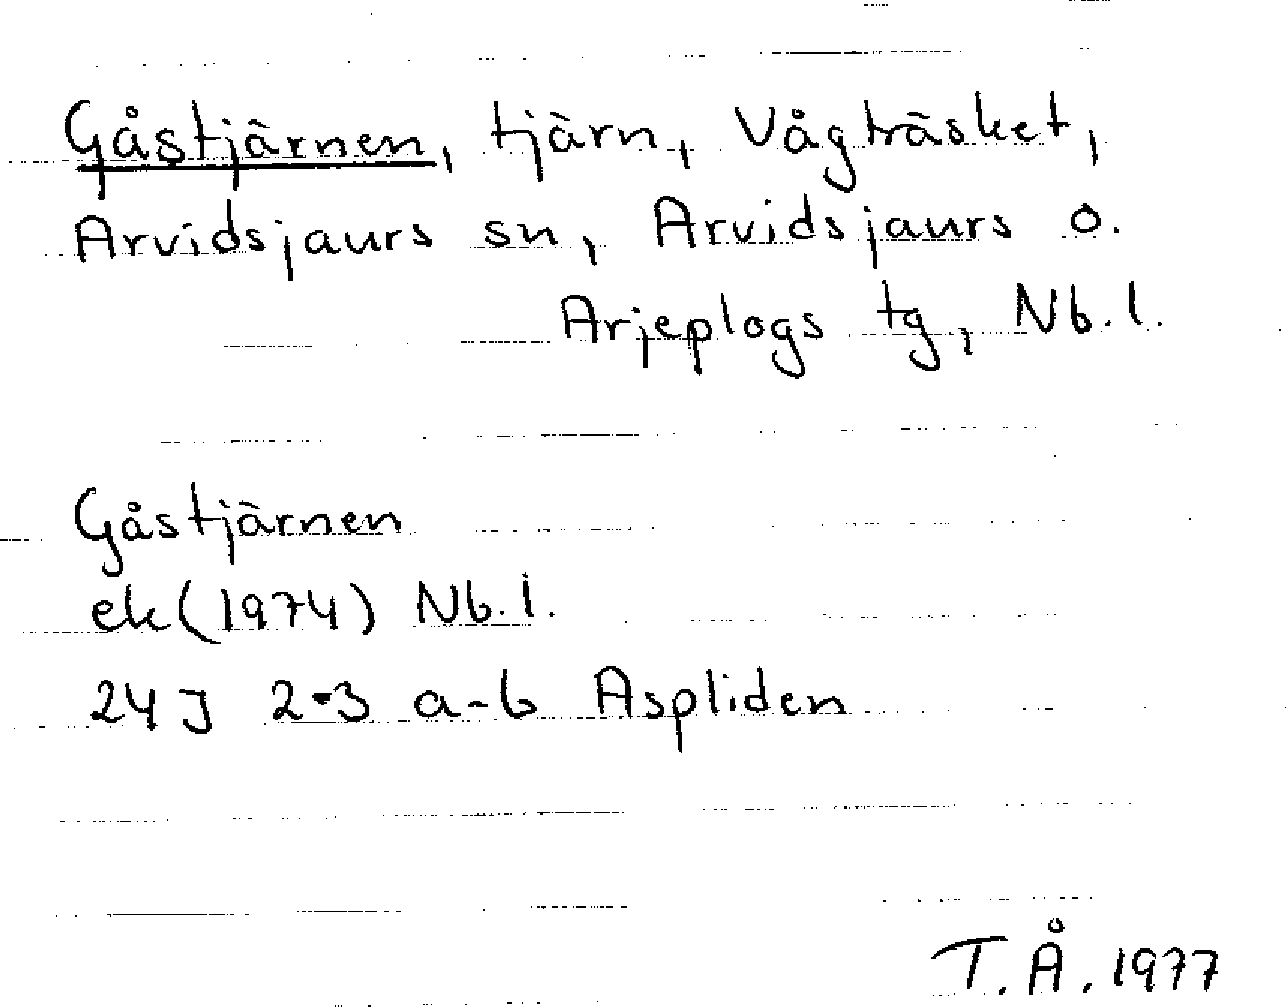 Gåstjärnen, tjärn, Vågträsket,
Arvidsjaurs sn, Arvidsjaurs o.
Arjeplogs tg, Nb.l.
Gåstjärnen
ek (1974) Nb.l.
24J 2-3 a-b Aspliden
T.Å. 1977